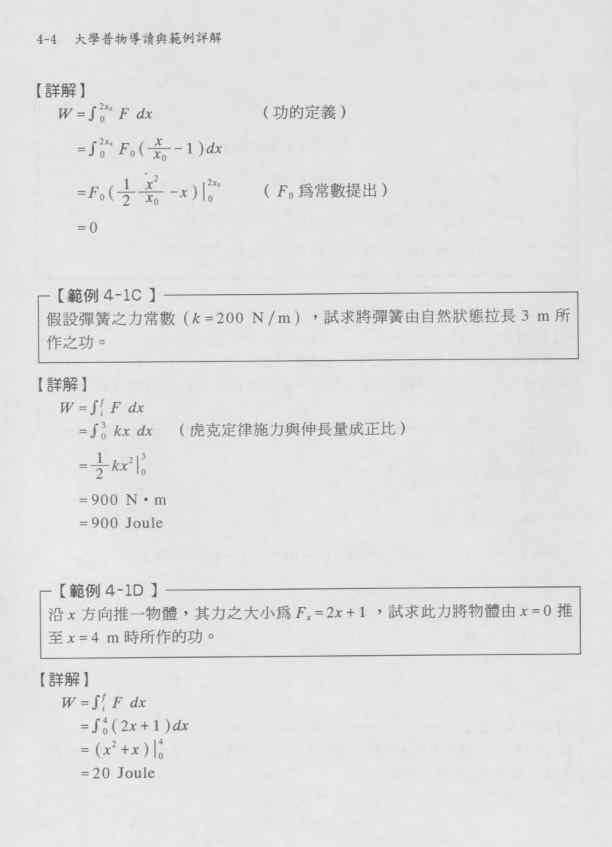 4-4 大學普物導讀與範例詳解
【詳解】
W = ∫₀^{2x₀} F dx （功的定義）
= ∫₀^{2x₀} F₀ ( x/x₀ − 1 ) dx
= F₀ ( 1/2 x²/x₀ − x ) |₀^{2x₀} （F₀ 爲常數提出）
= 0
【範例 4-1C】
假設彈簧之力常數（k = 200 N/m），試求將彈簧由自然狀態拉長 3 m 所
作之功。
【詳解】
W = ∫ᵢ^f F dx
= ∫₀³ kx dx （虎克定律施力與伸長量成正比）
= 1/2 kx² |₀³
= 900 N・m
= 900 Joule
【範例 4-1D】
沿 x 方向推一物體，其力之大小爲 Fₓ = 2x + 1 ，試求此力將物體由 x = 0 推
至 x = 4 m 時所作的功。
【詳解】
W = ∫ᵢ^f F dx
= ∫₀⁴ ( 2x + 1 ) dx
= ( x² + x ) |₀⁴
= 20 Joule